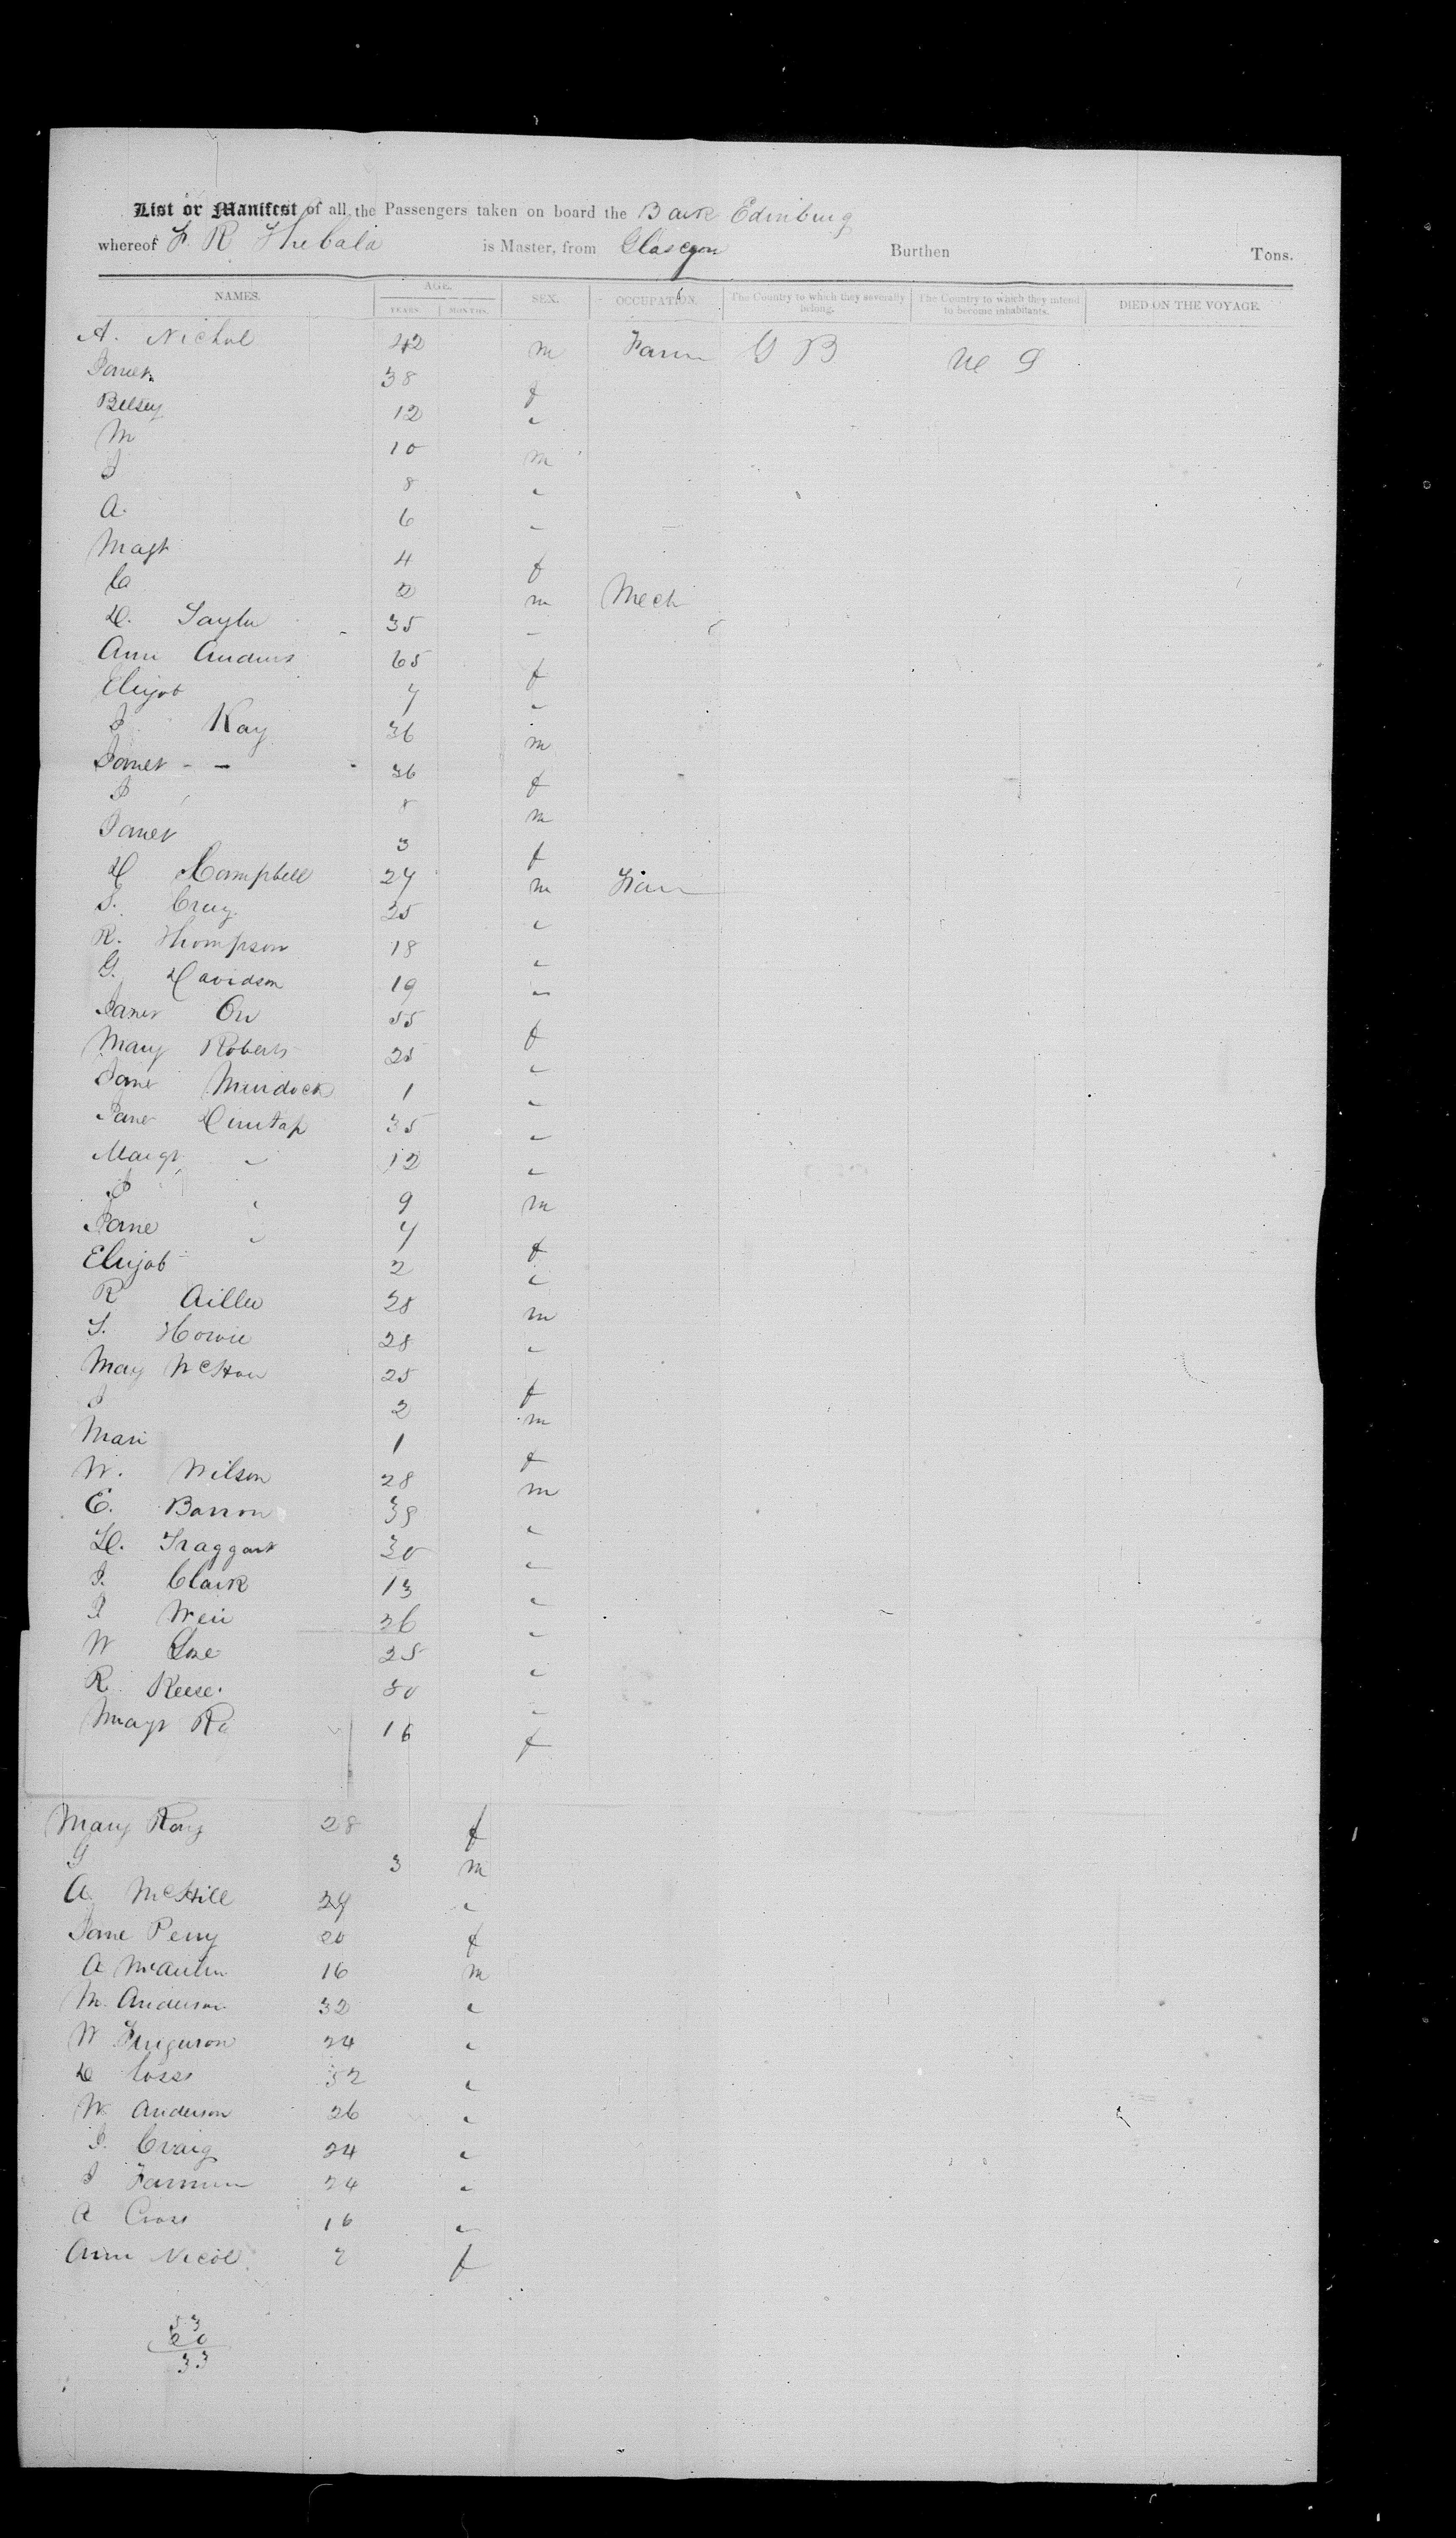 List or Manifest of all the Passengers taken on board the Bark Edinburg
whereof F. R Thebala is Master, from Glasgow Burthen Tons.
NAMES. AGE. YEARS. MONTHS. SEX. OCCUPATION. The Country to which they severally belong. The Country to which they intend to become inhabitants. DIED ON THE VOYAGE.
A. Nichol 42 m Farm G B U S
Janet 38 f
Betsey 12 "
M 10 m
J 8 "
A. 6 "
Magt 4 f
C 2 m Mech
D. Taylor 35 "
Ann Andrews 65 f
Elizab 7 "
J Kay 36 m
Janet - - 36 f
J 8 m
Janet 3 f
D Campbell 27 m Farm
S. Craig 25 "
R. Thompson 18 "
G. Davidson 19 "
Janet Orr 55 f
Mary Roberts 25 "
Jane Murdock 1 "
Jane Dunlap 35 "
Margt " 12 "
J " 9 m
Jane " 7 f
Elizab 2 "
R 28 m
T. Howie 28 "
Mary 25 f
J 2 m
Mari 1 f
W. Wilson 28 m
E. Barron 38 "
D. Traggart 30 "
J. Clark 13 "
J Weir 26 "
W 25 "
R. Reese. 30 "
Magt 16 f
Mary 28 f
G 3 m
A. McHill 27 "
Jane Perry 20 f
A 16 m
M. Anderson 32 "
W Ferguson 24 "
D 52 "
W. Anderson 26 "
J. Craig 24 "
J 24 "
A Cross 16 "
Ann Nicol 2 f
53
20
33